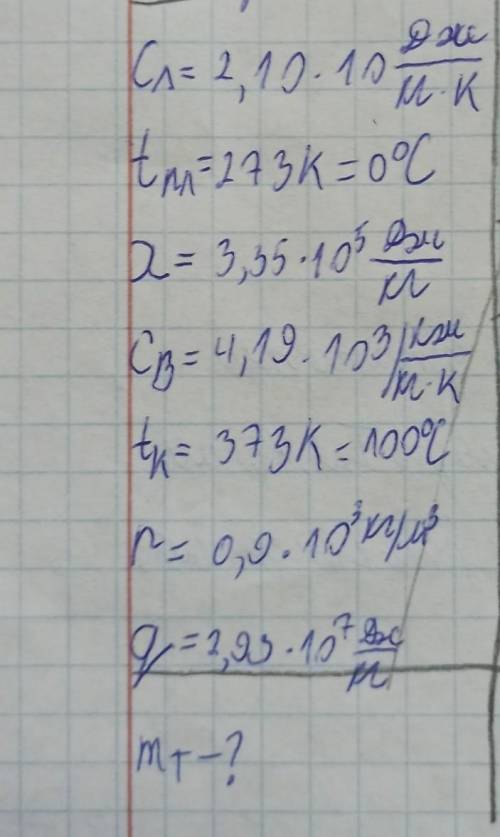 Cл = 2,10 · 10 Дж/кг · К
tпл = 273К = 0°C
λ = 3,35 · 10⁵ Дж/кг
CВ = 4,19 · 10³ кДж/кг · К
tк = 373К = 100°C
r = 0,9 · 10³ кг/м³
q = 2,93 · 10⁷ Дж/кг
mт - ?